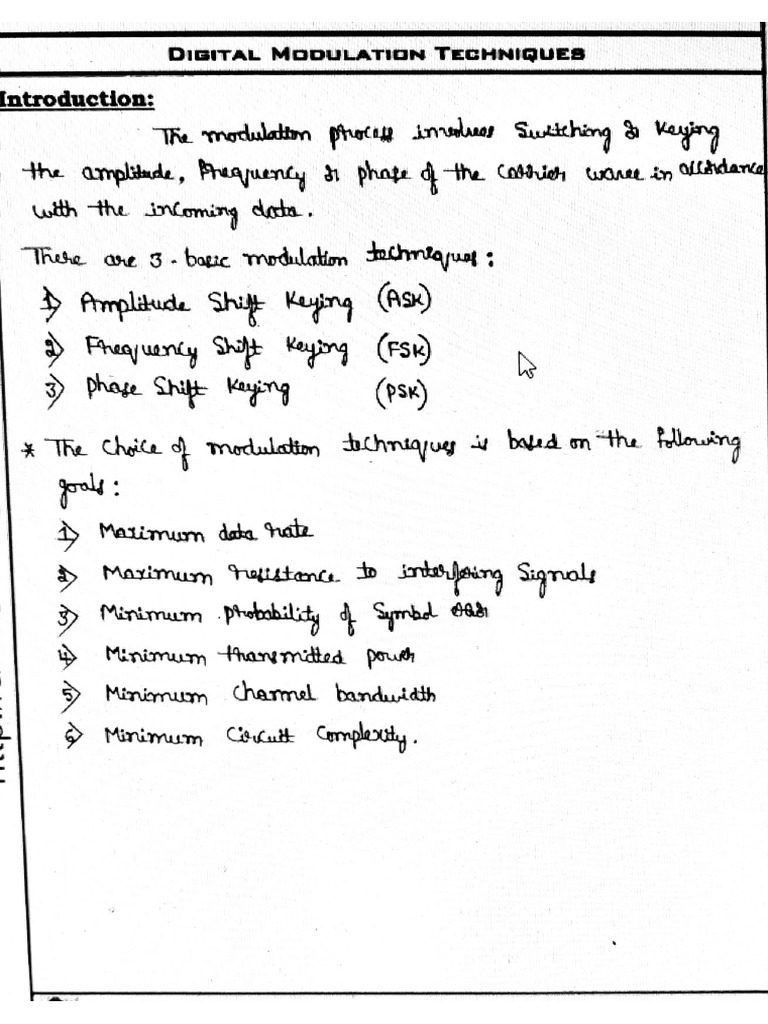 DIGITAL MODULATION TECHNIQUES
Introduction:
The modulation process involves Switching or Keying
the amplitude, frequency or phase of the carrier wave in accordance
with the incoming data.
There are 3-basic modulation techniques:
1) Amplitude Shift Keying (ASK)
2) Frequency Shift Keying (FSK)
3) Phase Shift Keying (PSK)
* The choice of modulation techniques is based on the following
goals:
1) Maximum data rate
2) Maximum resistance to interfering Signals
3) Minimum probability of Symbol error
4) Minimum transmitted power
5) Minimum Channel bandwidth
6) Minimum Circuit Complexity.